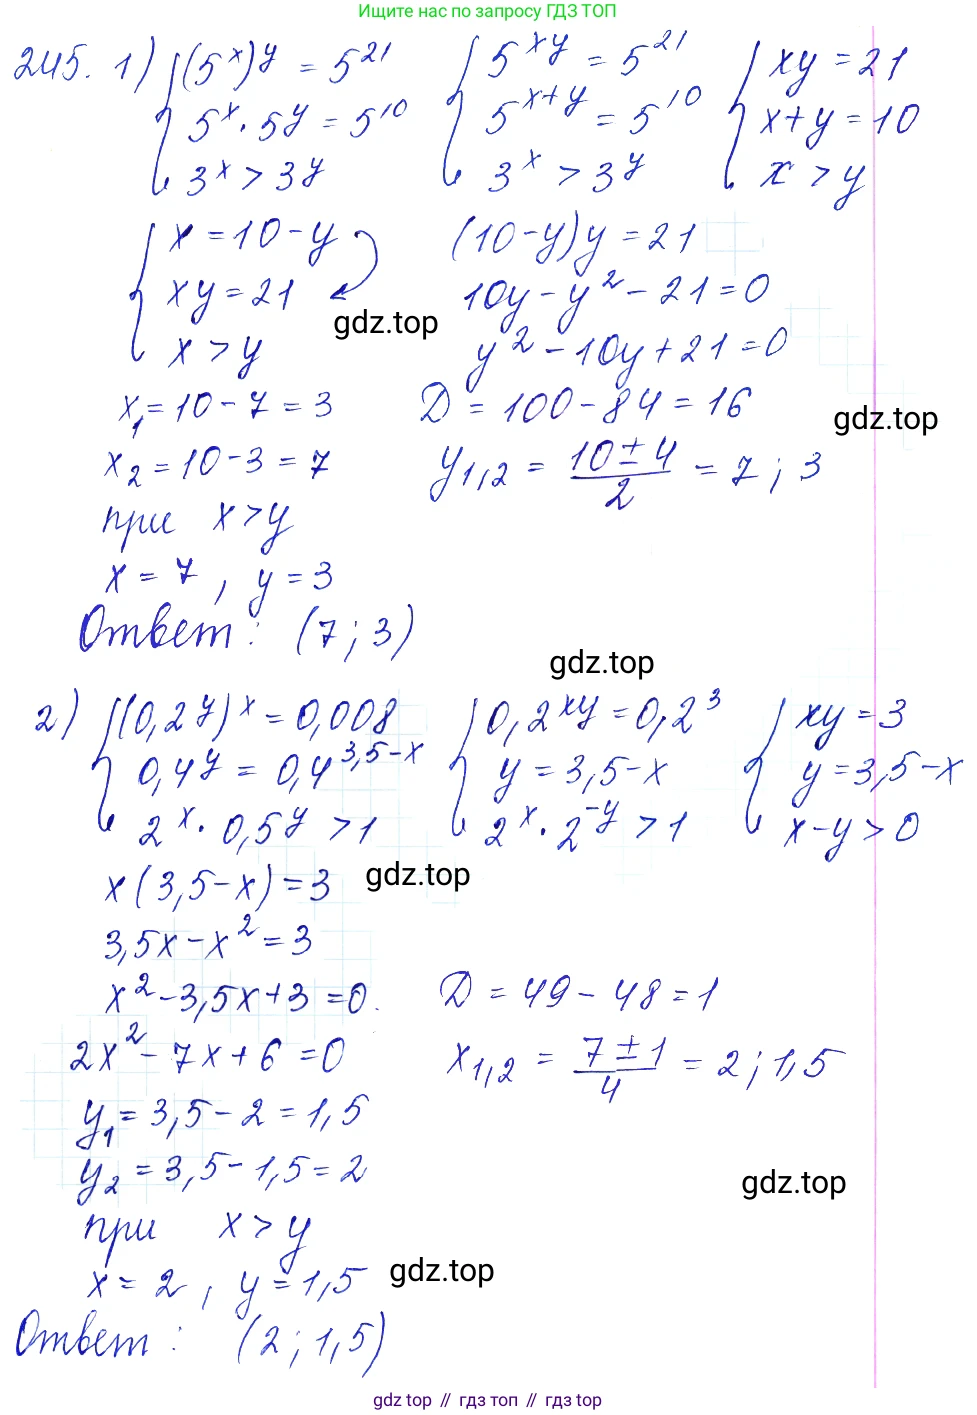 Ищите нас по запросу ГДЗ ТОП
245. 1) { (5^x)^y = 5^21 { 5^xy = 5^21 { xy = 21
5^x · 5^y = 5^10 5^x+y = 5^10 x+y = 10
3^x > 3^y 3^x > 3^y x > y
{ x = 10 - y (10 - y)y = 21
xy = 21 10y - y² - 21 = 0
gdz.top
x > y y² - 10y + 21 = 0
x₁ = 10 - 7 = 3 D = 100 - 84 = 16
gdz.top
x₂ = 10 - 3 = 7 y₁,₂ = (10 ± 4)/2 = 7 ; 3
при x > y
x = 7 , y = 3
Ответ : (7 ; 3)
gdz.top
2) { (0,2^y)^x = 0,008 { 0,2^xy = 0,2³ { xy = 3
0,4^y = 0,4^3,5-x y = 3,5 - x y = 3,5 - x
2^x · 0,5^y > 1 2^x · 2^-y > 1 x - y > 0
x(3,5 - x) = 3
gdz.top
3,5x - x² = 3
x² - 3,5x + 3 = 0. D = 49 - 48 = 1
2x² - 7x + 6 = 0 x₁,₂ = (7 ± 1)/4 = 2 ; 1,5
y₁ = 3,5 - 2 = 1,5
y₂ = 3,5 - 1,5 = 2
gdz.top
при x > y
x = 2 , y = 1,5
gdz.top
Ответ : (2 ; 1,5)
gdz top // гдз топ // gdz top